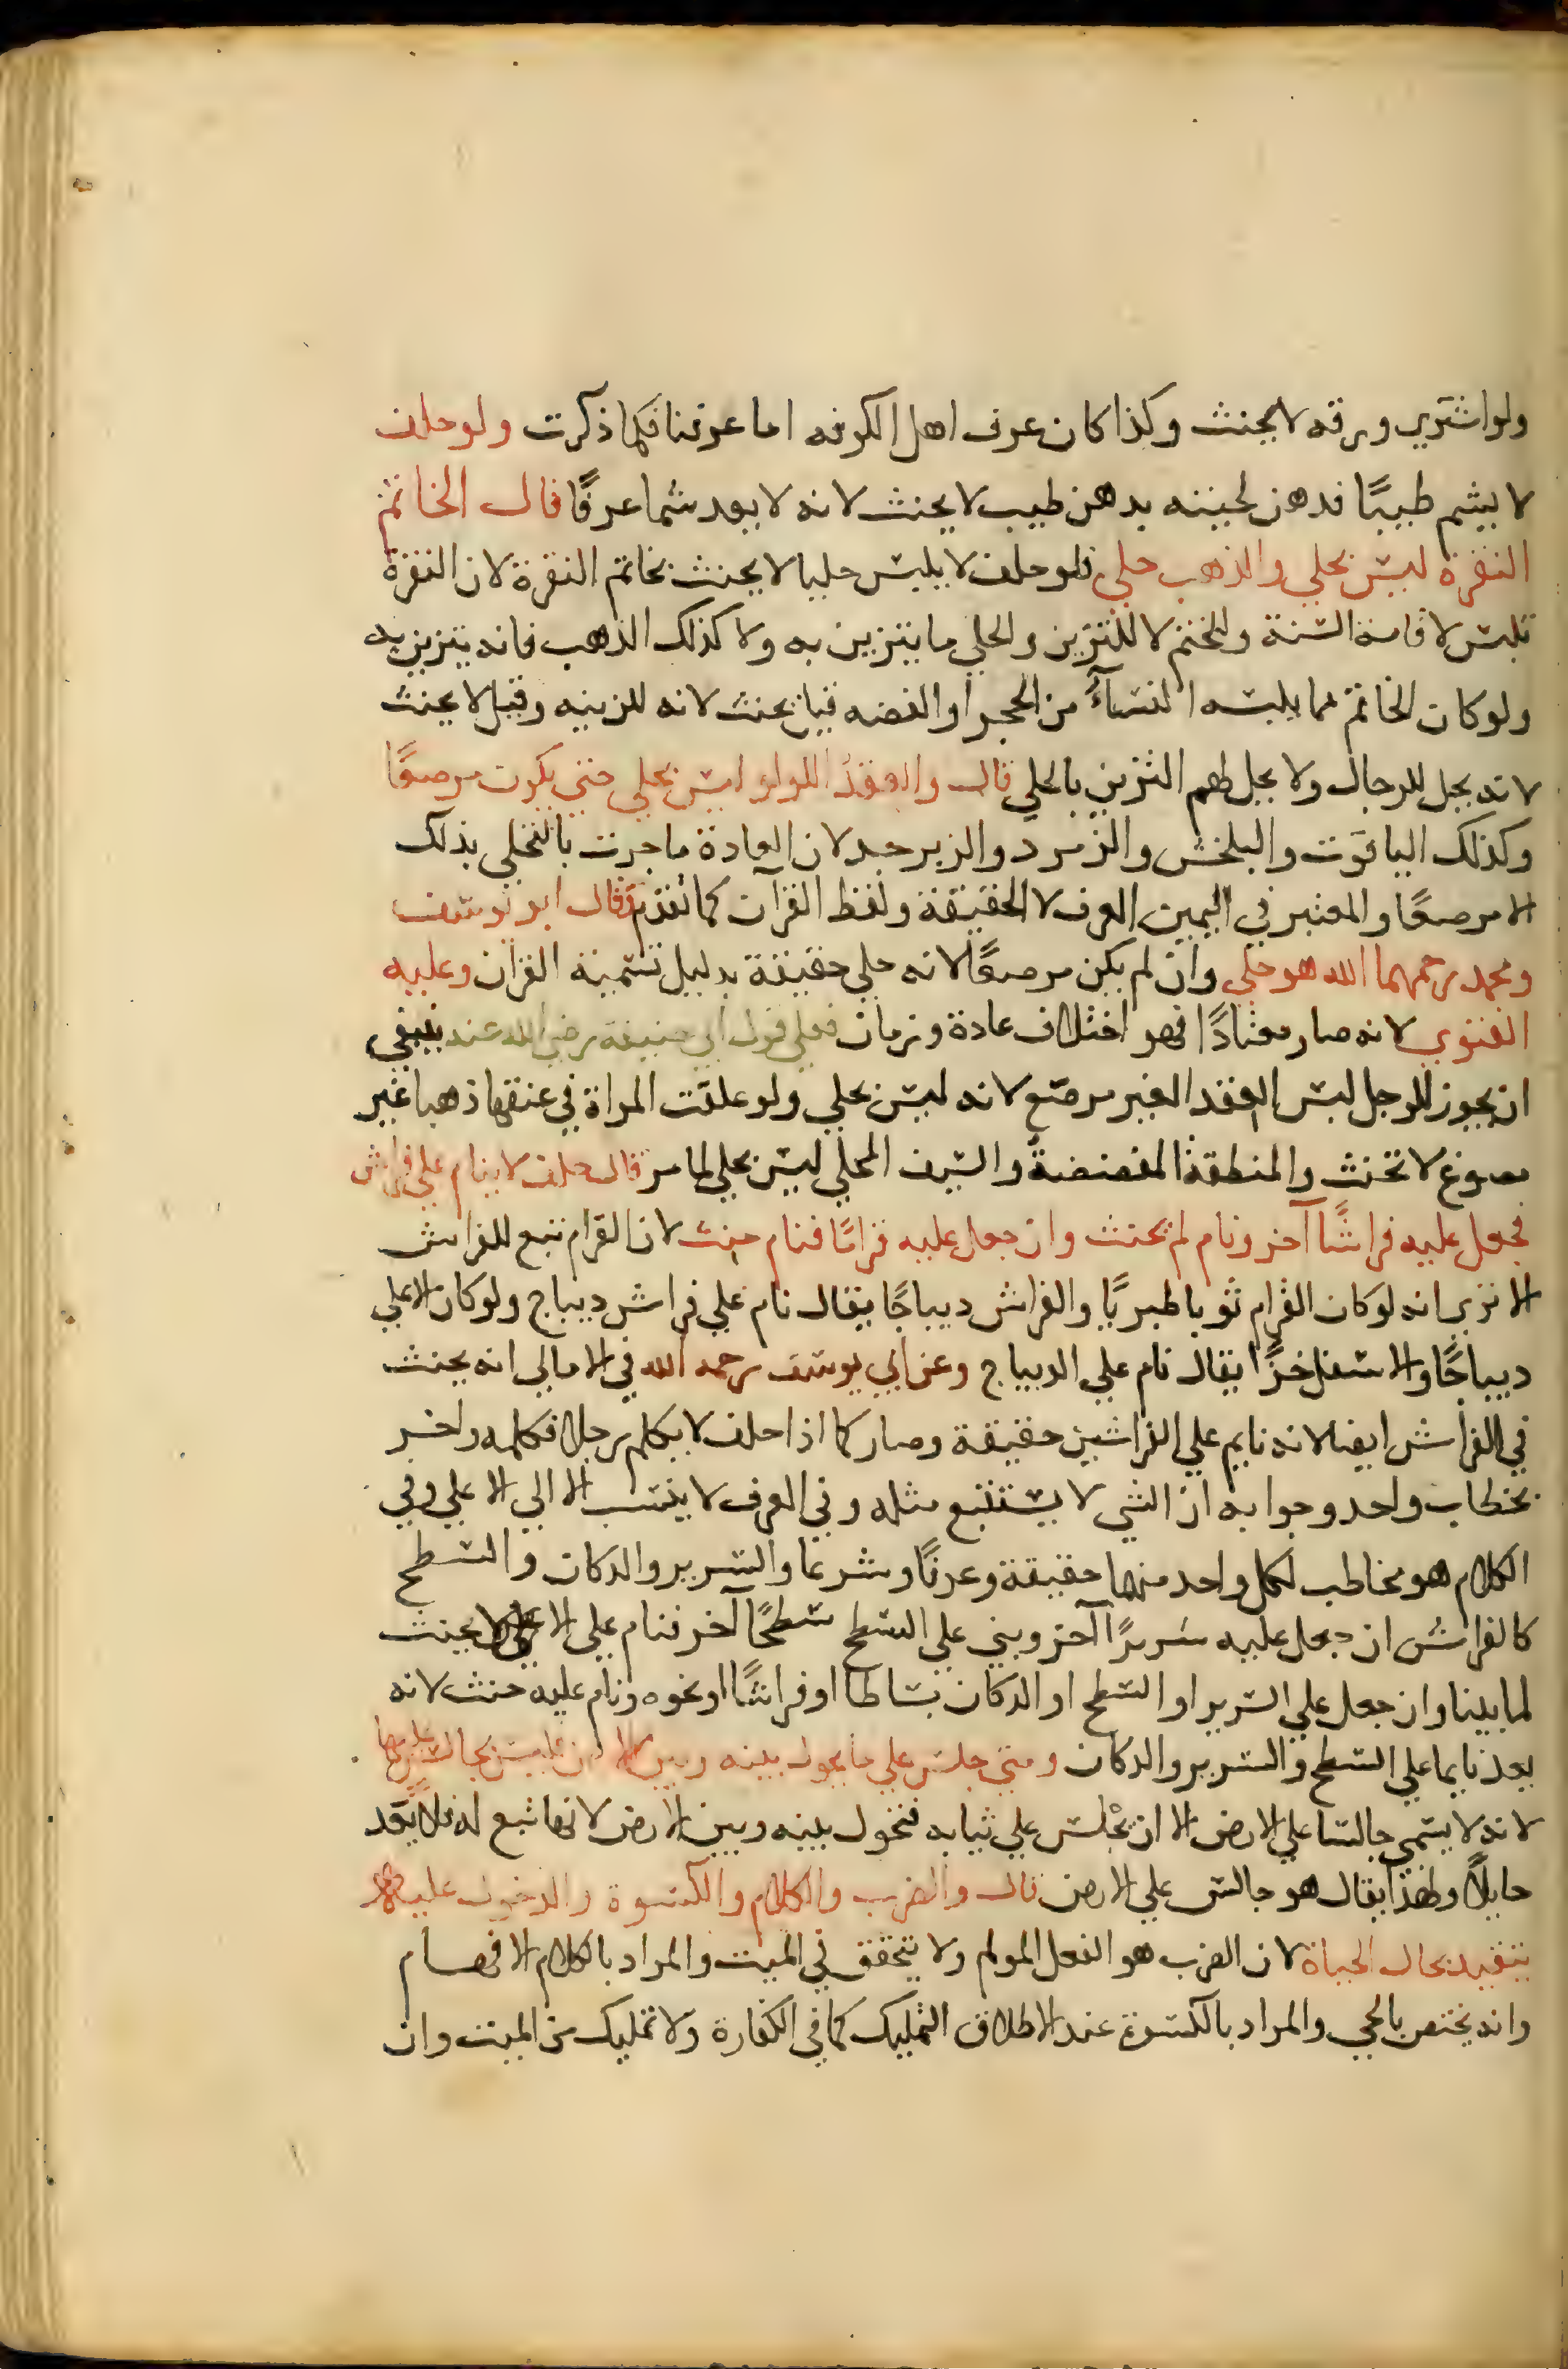 ولو اشتري ورقه لا يحنث وكذا كان عرف اهل الكوفه اما عرفنا فكما ذكرت ولو حلف
لا يشم طيبًا فدهن لحيته بدهن طيب لا يحنث لانه لا يعد شما عرفًا قال الخاتم
النقرة ليس بحلي والذهب حلي فلو حلف لا يلبس حليا لا يحنث بخاتم النقرة لان النقرة
تلبس لاقامة السنة والختم لا للتزين والحلي ما يتزين به ولا كذلك الذهب فانه يتزين به
ولو كان الخاتم مما يلبسه النسآء من الحجر او الفضه قيل يحنث لانه للزينه وقيل لا يحنث
لانه يحل للرجال ولا يحل لهم التزين بالحلي قال والعقد اللولو ليس بحلي حتي يكون مرصعًا
وكذلك الياقوت والبلخش والزمرد والزبرجد لان العادة ما جرت بالتحلي بذلك
الا مرصعًا والمعتبر في اليمين العرف لا الحقيقة ولفظ القرآن كما تقدم وقال ابو يوسف
ومحمد رحمهما الله هو حلي وان لم يكن مرصعًا لانه حلي حقيقة بدليل تسمية القرآن وعليه
الفتوي لانه صار معتادًا فهو اختلاف عادة وزمان فعلي قول ابي حنيفة رضي الله عنه ينبغي
ان يجوز للرجل لبس العقد الغير مرصع لانه ليس بحلي ولو علقت المراة في عنقها ذهبا غير
مصوغ لا تحنث والمنطقة المفضضة والسيف المحلي ليس بحلي لما مر قال حلف لا ينام علي فراش
فجعل عليه فراشًا آخر ونام لم يحنث وان جعل عليه قرامًا فنام حنث لان القرام تبع للفراش
الا تري انه لو كان القرام ثوبا طبريًا والفراش ديباجًا يقال نام علي فراش ديباج ولو كان الاعلي
ديباجًا والاسفل خزًا يقال نام علي الديباج وعن ابي يوسف رحمه الله في الامالي انه يحنث
في الفراش ايضا لانه نايم علي الفراشين حقيقة وصار كما اذا حلف لا يكلم رجلا فكلمه واخر
بخطاب واحد وجوابه ان الشي لا يستتبع مثله وفي العرف لا ينسب الا الي الاعلي وفي
الكلام هو مخاطب لكل واحد منهما حقيقة وعرفًا وشرعا والسرير والدكان والسطح
كالفراش ان جعل عليه سريرًا آخر وبني علي السطح سطحًا آخر فنام علي الاعلي لا يحنث
لما بينا وان جعل علي السرير او السطح او الدكان بساطا او فراشًا او نحوه ونام عليه حنث لانه
يعد نايما علي السطح والسرير والدكان ومتي جلس علي ما يحول بينه وبين الارض فليس بجالس عليها
لانه لا يسمي جالسا علي الارض الا ان يجلس علي ثيابه فتحول بينه وبين الارض لانها تبع له فلا يعد
حايلاً ولهذا يقال هو جالس علي الارض قال والضرب والكلام والكسوة والدخول عليه
يتقيد بحال الحياة لان الضرب هو الفعل المولم ولا يتحقق في الميت والمراد بالكلام الافهام
وانه يختص بالحي والمراد بالكسوة عند الاطلاق التمليك كما في الكفارة ولا تمليك من الميت وان